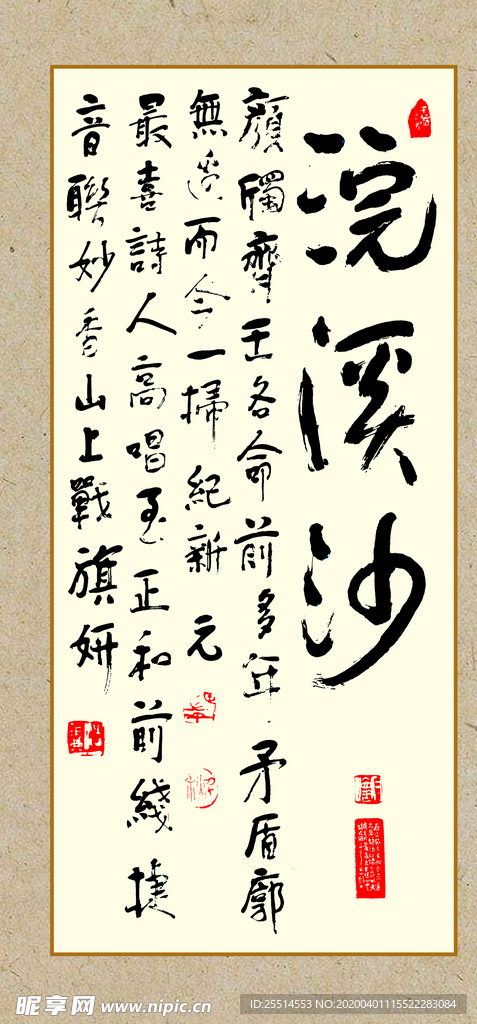 浣溪沙
顏斶齊王各命前多年矛盾廓
無邊而今一掃紀新元
最喜詩人高唱至正和前綫捷
音聯妙香山上戰旗妍
昵享网 www.nipic.cn
ID:25514553 NO:20200401115522283084